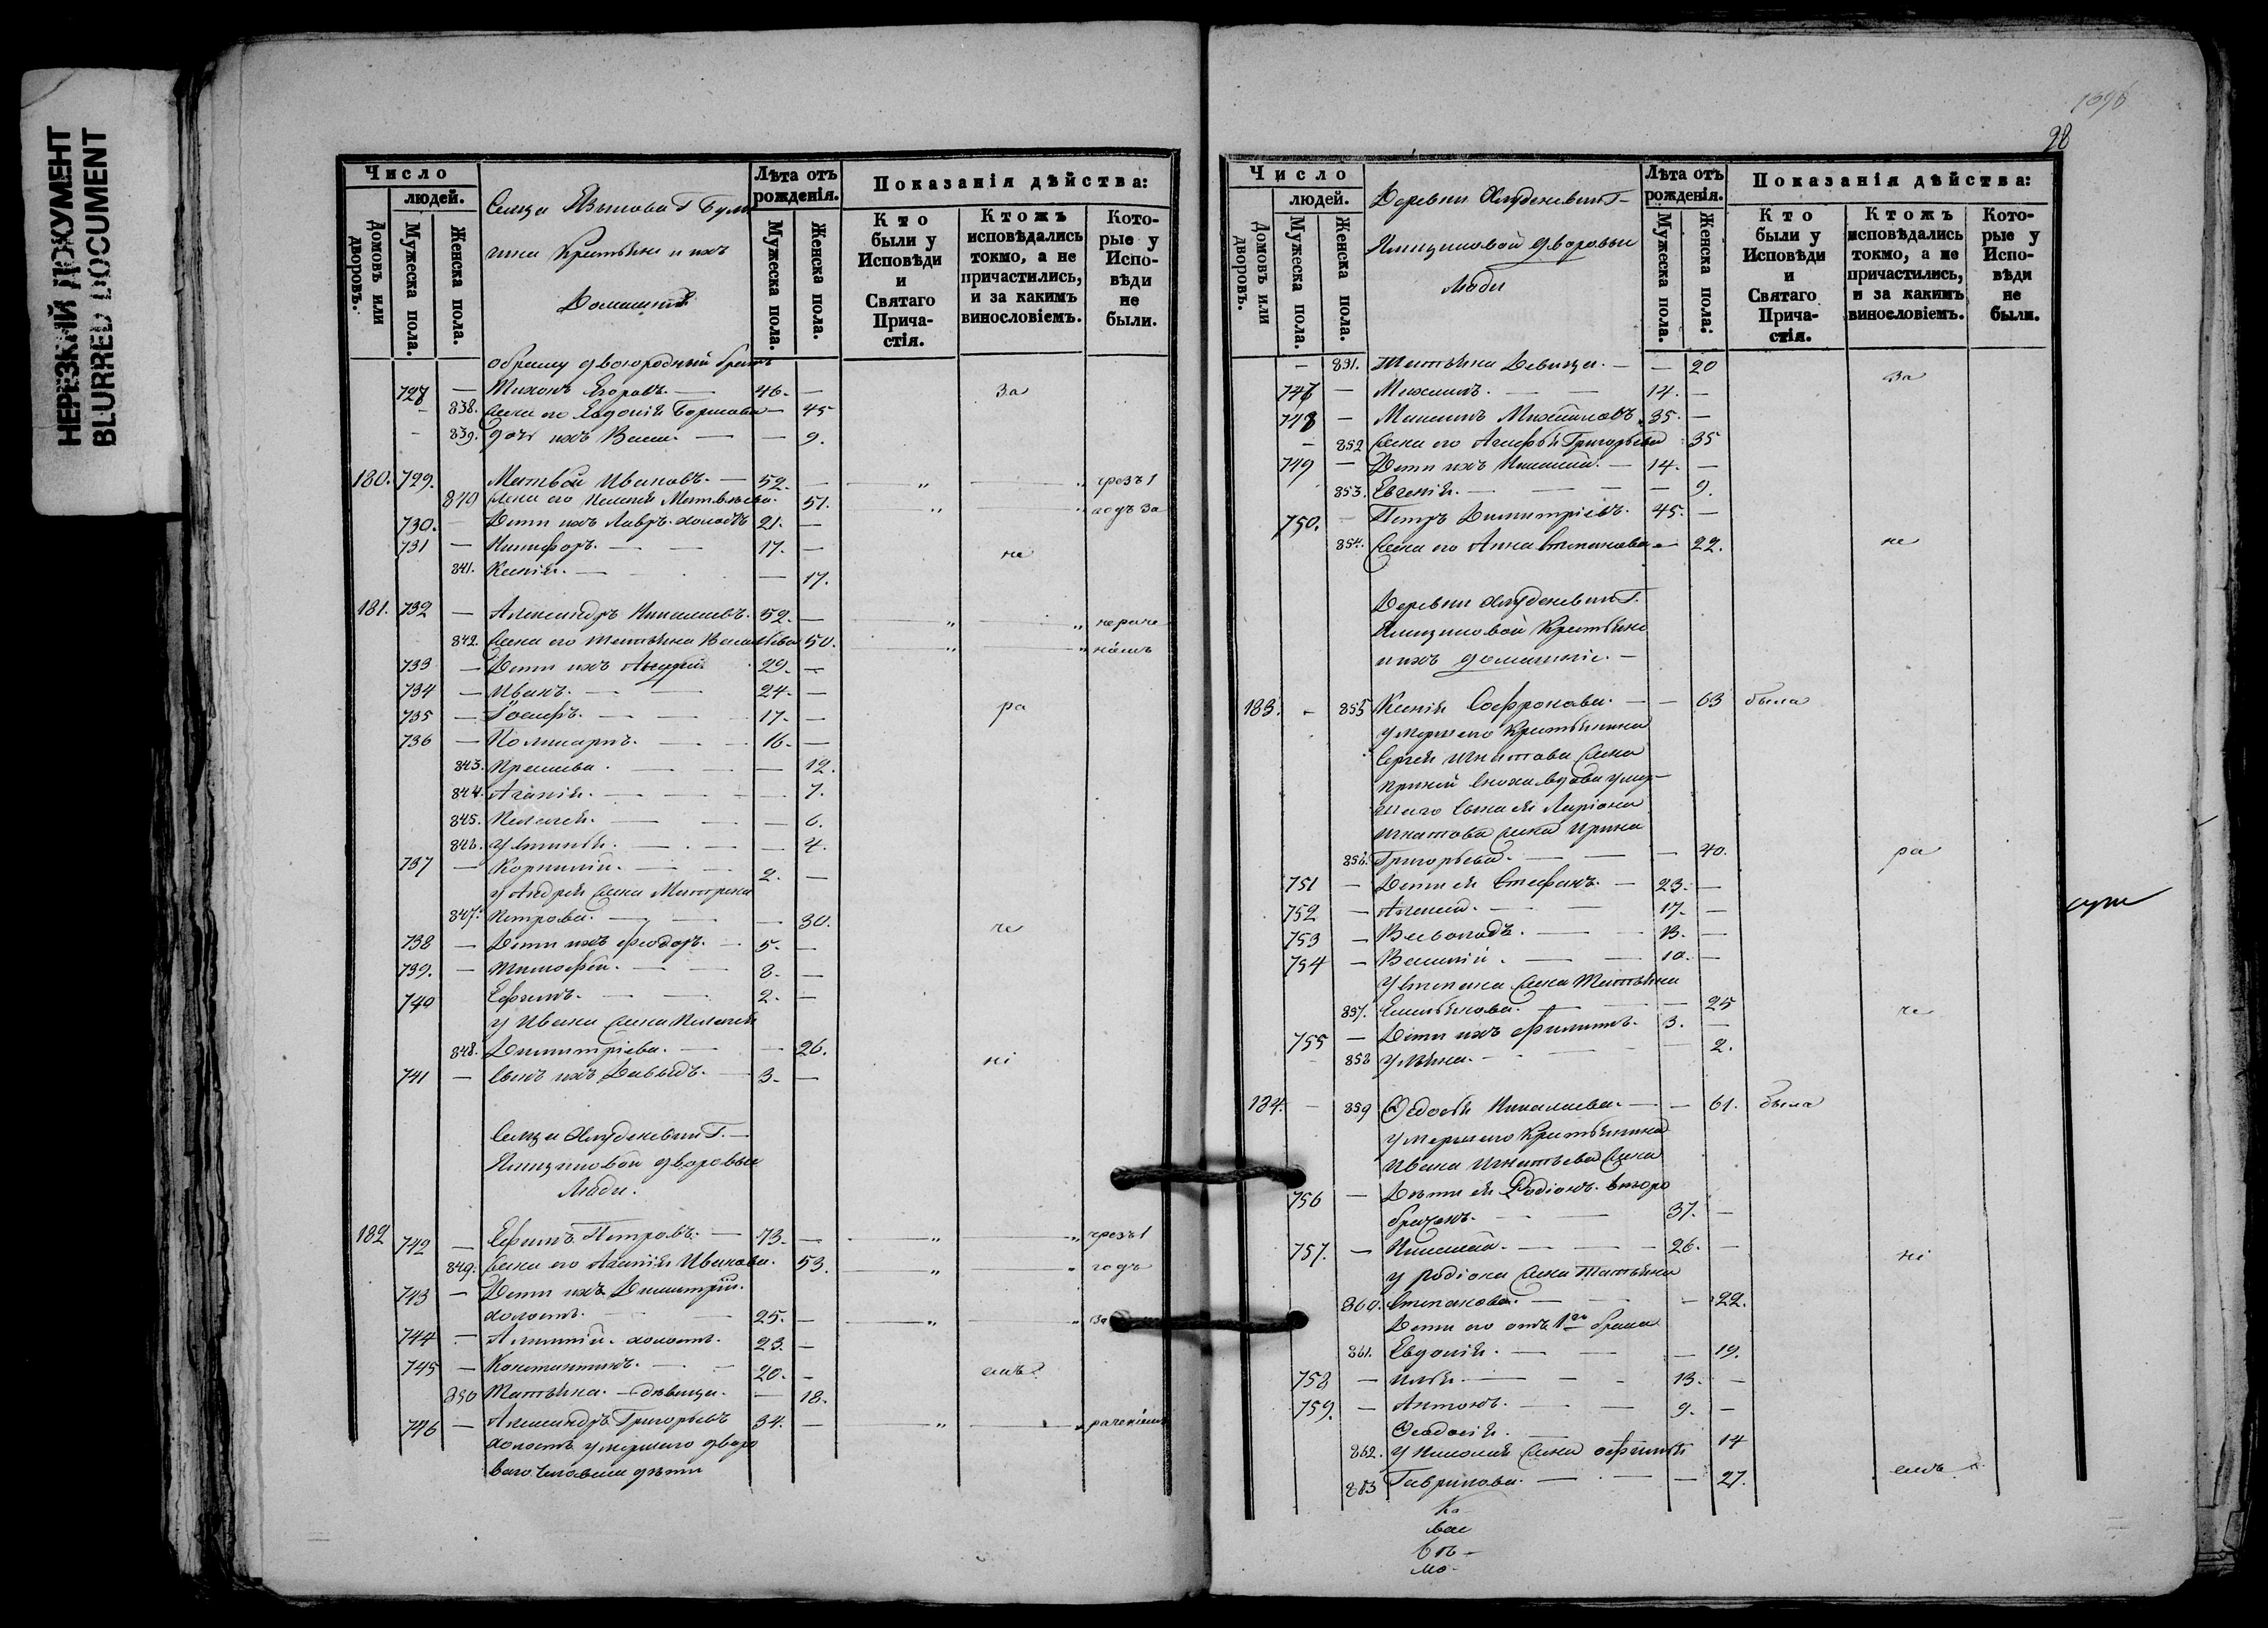 НЕРЕЗКИЙ ДОКУМЕНТ
BLURRED DOCUMENT
Число
людей.
Домовъ или дворовъ.
Мужеска пола.
Женска пола.
Лѣта отъ рожденія.
Мужеска пола.
Женска пола.
Показанія дѣйства:
Кто были у Исповѣди и Святаго Причастія.
Ктожъ исповѣдались токмо, а не причастились, и за какимъ винословіемъ.
Которые у Исповѣди не были.
Крестьяне и ихъ
Домашніе
двоюродный братъ
728 — Тихонъ Егоровъ. — 46. — За
838. Жена его Евдокія — 45
839. дочь ихъ Васса. — — 9.
180. 729. Матвей Ивановъ. — 52. — чрезъ 1
840 Жена его Пелагея Матвѣева. 51. годъ за
730. — Дети ихъ Лавръ холостъ 21. —
731 — Никифоръ. — 17. — не
841. Ксенія. — — 17.
181. 732 — Александръ Николаевъ. 52. — нераче
842. Жена его Татьяна Васильева 50. ніемъ
733 — Дети ихъ Андрей 29. —
734 — Иванъ. — 24. —
735 — Іосифъ. — 17. — ра
736 — Поликарпъ. — 16. —
843. — 12.
844. Агапія. — — 7.
845. Пелагея. — — 6.
846. Устинья. — — 4.
737 — Корнилій. — 2. —
у Андрея жена Матрена
847. Петрова. — — 30. че
738 — Дети ихъ Феодоръ. — 5. —
739. — Тимофей. — 8. —
740 Ефимъ. — 2. —
у Ивана жена Пелагея
848. Димитріева. — — 26. ні
741 — Сынъ ихъ Давыдъ. — 3. —
Сельца Хлуденевки Г.
дворовые
Люди.
182 742 — Ефимъ Петровъ. — 73. — чрезъ 1
849. Жена его Агапія Иванова. 53. годъ
743 — Дети ихъ Димитрій.
холостъ. — 25. — за
744 — холостъ. 23. —
745 — Константинъ. — 20. — емъ
850 Татьяна. — дѣвица. — 18.
746 — Александръ Григорьевъ 34. — раченіемъ
холостъ умершаго дворо
ваго человека дѣти
28
Число
людей.
Домовъ или дворовъ.
Мужеска пола.
Женска пола.
Деревни Хлуденевки Г.
дворовые
Люди
Лѣта отъ рожденія.
Мужеска пола.
Женска пола.
Показанія дѣйства:
Кто были у Исповѣди и Святаго Причастія.
Ктожъ исповѣдались токмо, а не причастились, и за какимъ винословіемъ.
Которые у Исповѣди не были.
— 851. Татьяна Девица. — — 20 За
747 — 14. —
748 — 35. —
— 852 Жена его Агафья Григорьева 35
749 — Дети ихъ Николай. — 14. —
853. Евгенія. — — 9.
750. — Петръ Димитріевъ. 45. —
854. Жена его Анна Степанова — 22. не
Деревни Хлуденевки Г.
Крестьяне
и ихъ домашніе. —
183. — 855 Ксенія Софронова. — — 63 была
умершаго Крестьянина
Сергея Игнатова жена
при ней Сноха вдова умер-
шаго Сына ея Ларіона
Игнатова жена Ирина
856. Григорьева. — — 40. ра
751 — Дети ея Стефанъ. — 23. —
752 — Алексей. — 17. —
753 — Всеволодъ. — 13. —
754 — Василій. — 10. —
у Степана жена Татьяна
857. Емельянова. — — 25 че
755 — Дети ихъ Филиппъ. 3. —
858 Ульяна. — — 2.
184. — 859 Федосья Николаева. — — 61. была
умершаго Крестьянина
Ивана Игнатьева жена
756 — Дети ея Родіонъ. второ
браченъ. — 37. —
757. — Николай. — 26. — ні
у Родіона жена Татьяна
860. Степанова. — — 22.
Дети его отъ 1го брака
861. Евдокія. — — 19.
758 — Илья — 13. —
759. — Антонъ. — 9. —
862. Феодосія. — 14
у Николая жена Афимья
863 Гаврилова. — — 27. емъ